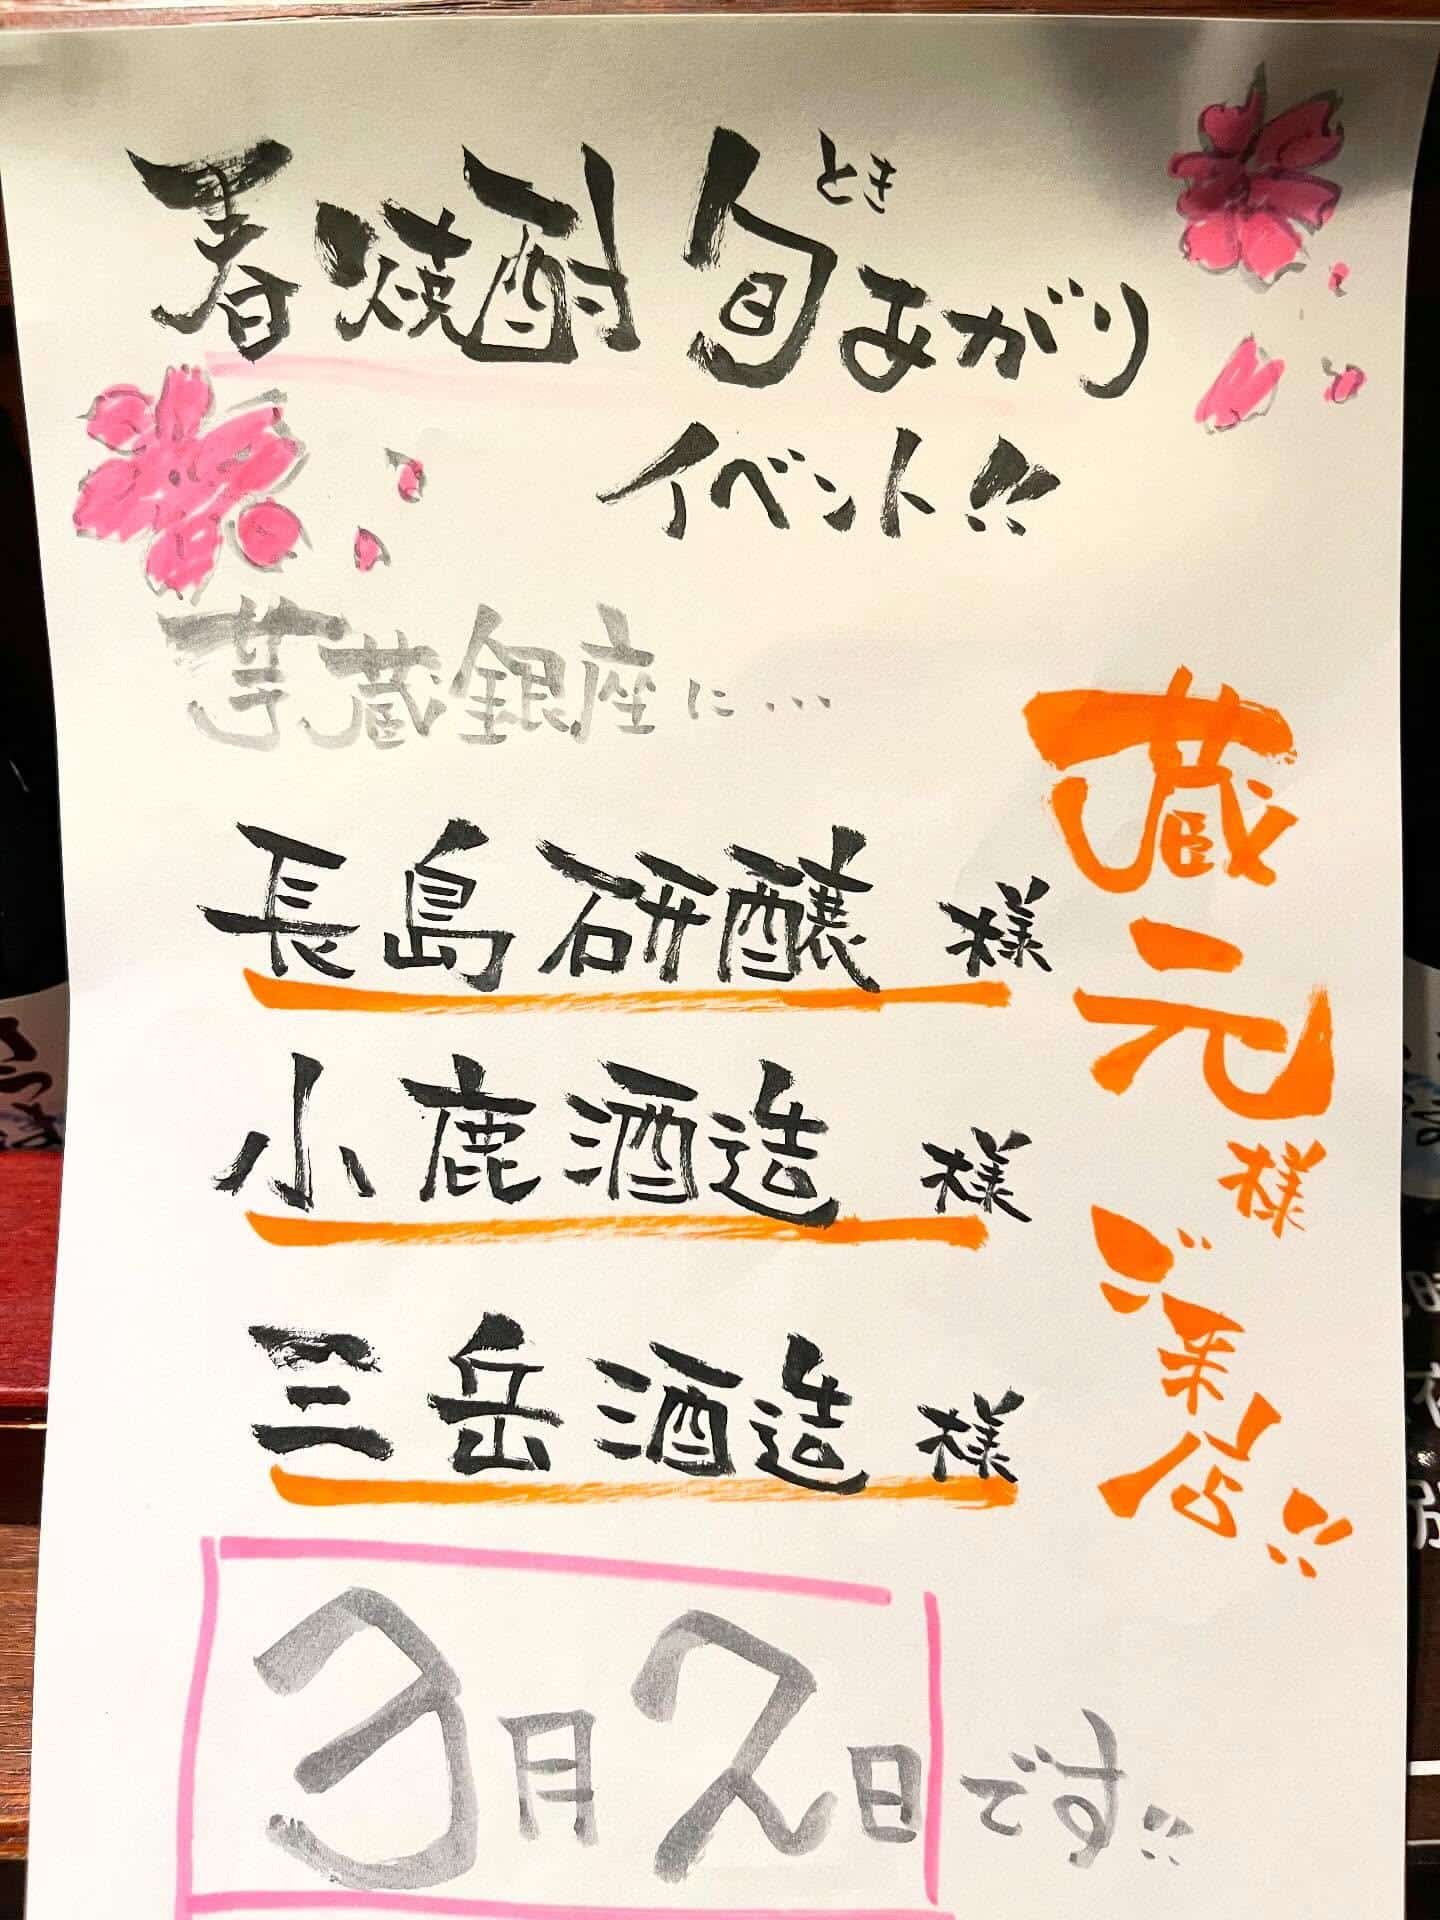 春焼酎 旬あがり
とき
イベント!!
芋蔵銀座に...
長島研醸 様
小鹿酒造 様
三岳酒造 様
蔵元様ご来店!!
3月2日です!!